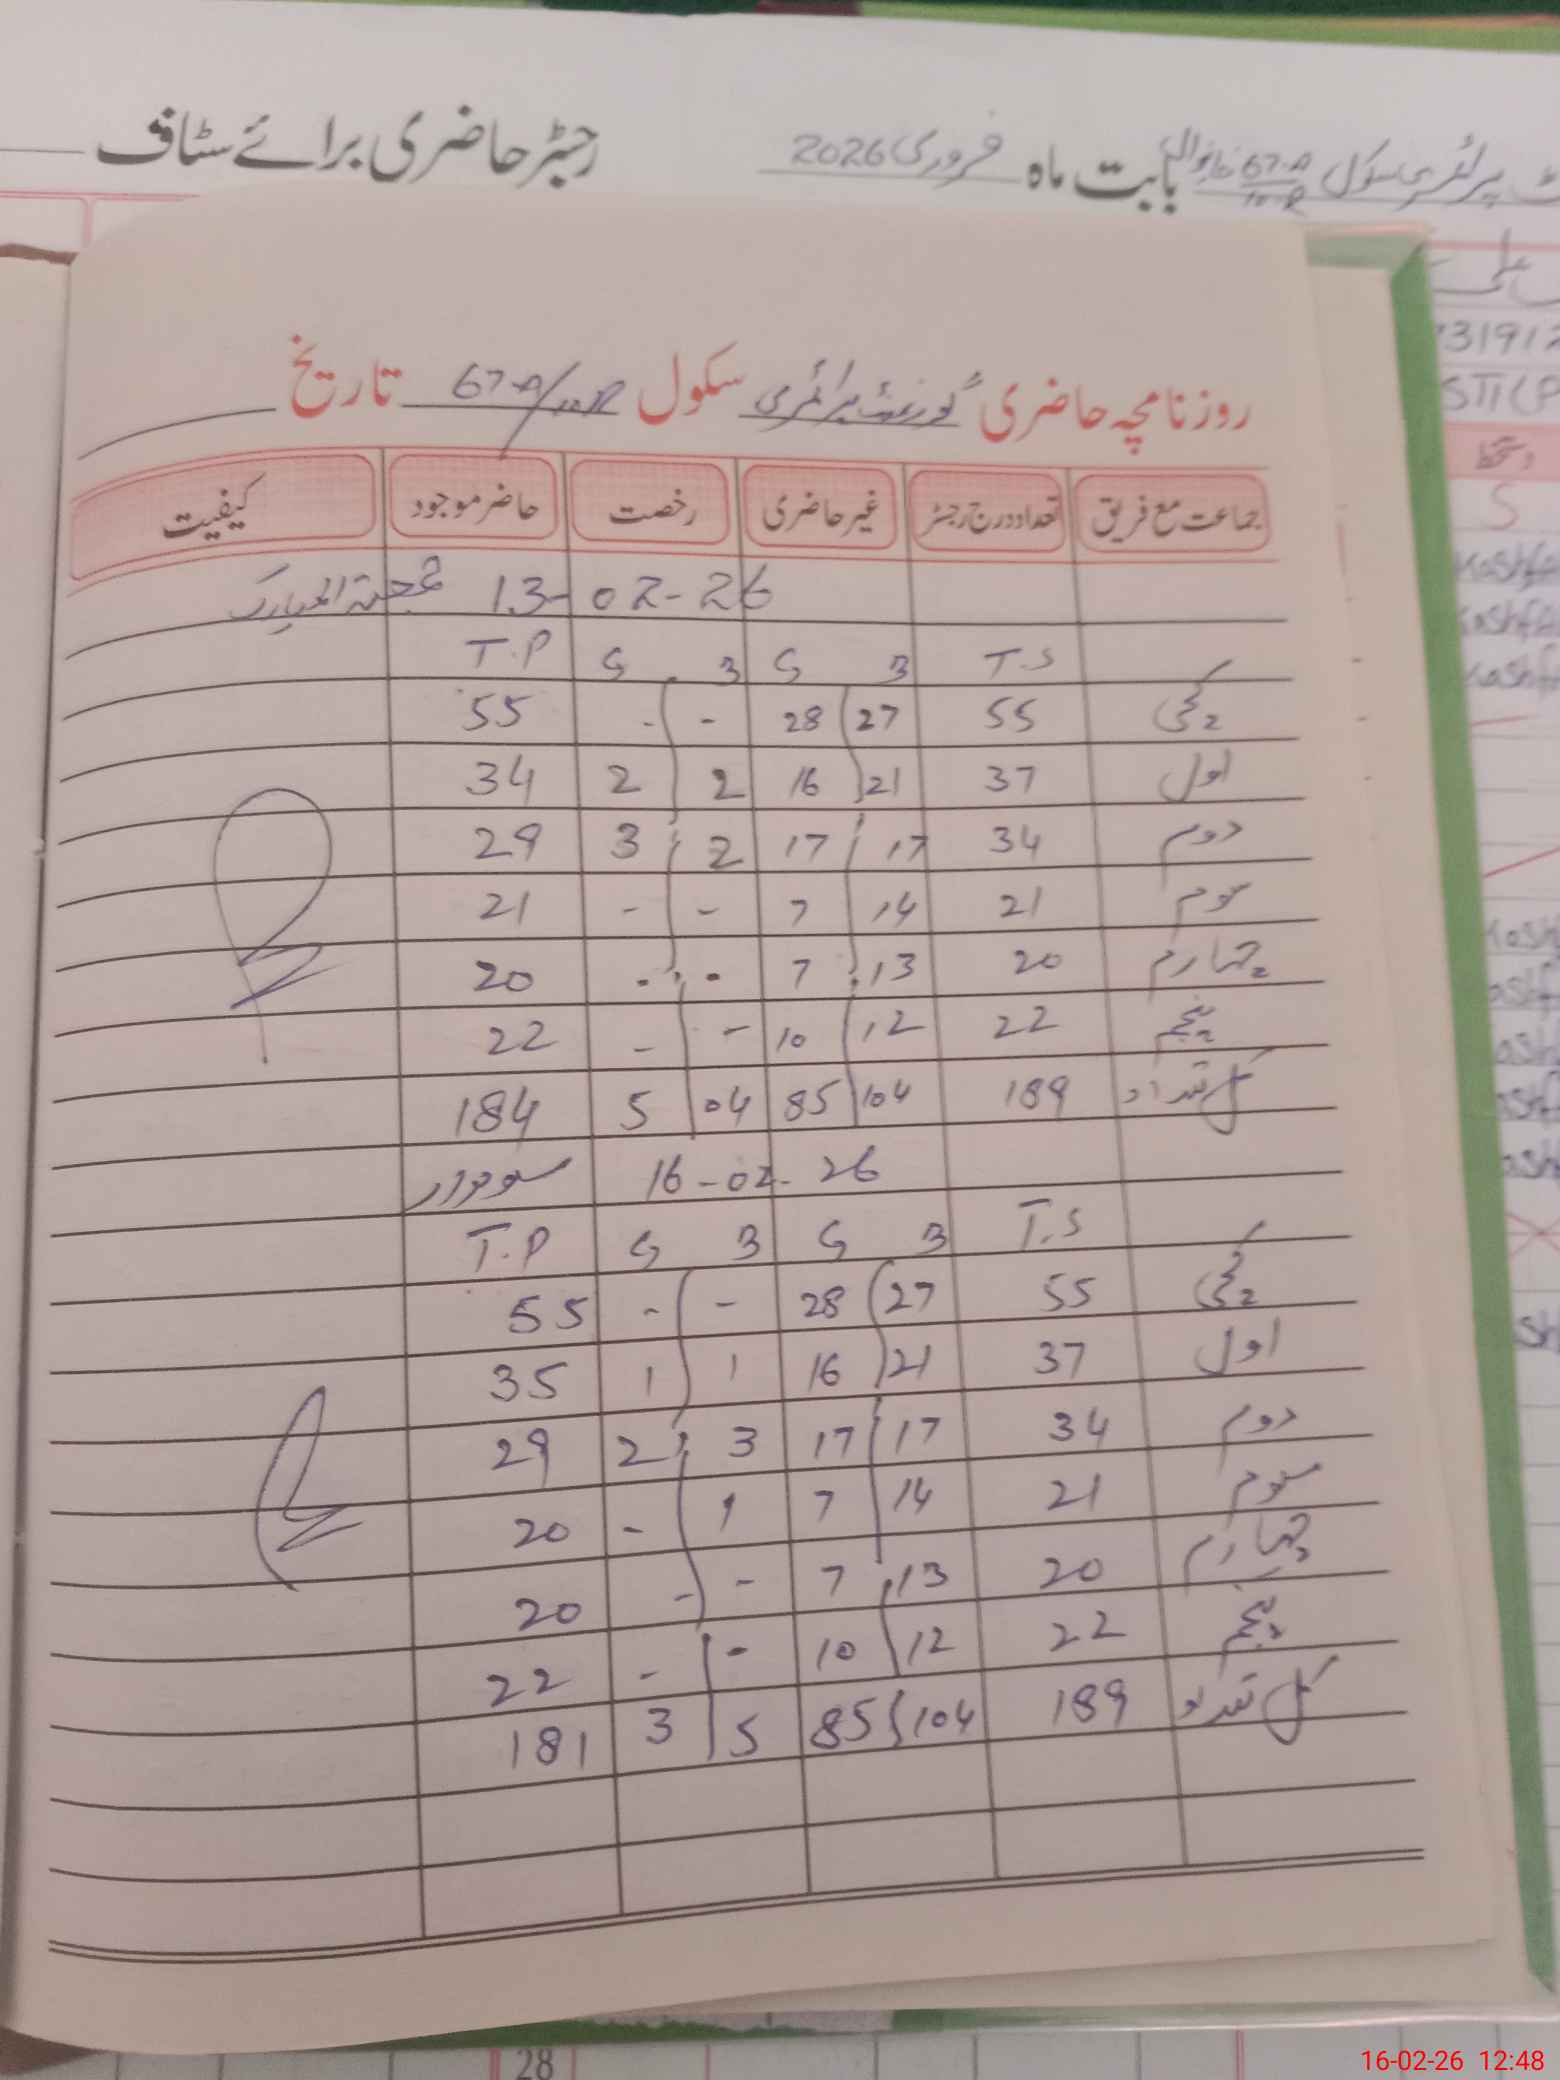 رجسٹر حاضری برائے سٹاف بابت ماہ فروری 2026 پرائمری سکول 67-A/10-R خانیوال
علی
31912
STI(P
دستخط
S
روزنامچہ حاضری گورنمنٹ پرائمری سکول 67-A/10.R تاریخ
جماعت مع فریق تعداد درج رجسٹر غیر حاضری رخصت حاضر موجود کیفیت
13-02-26 جمعۃ المبارک
T.S B G B G T.P
کچی 55 27 28 - - 55
اول 37 21 16 2 2 34
دوم 34 17 17 2 3 29
سوم 21 14 7 - - 21
چہارم 20 13 7 . . 20
پنجم 22 12 10 - - 22
کل تعداد 189 104 85 04 5 184
16-02-26 سوموار
T.S B G B G T.P
کچی 55 27 28 - - 55
اول 37 21 16 1 1 35
دوم 34 17 17 3 2 29
سوم 21 14 7 1 - 20
چہارم 20 13 7 - - 20
پنجم 22 12 10 - - 22
کل تعداد 189 104 85 5 3 181
28
16-02-26 12:48